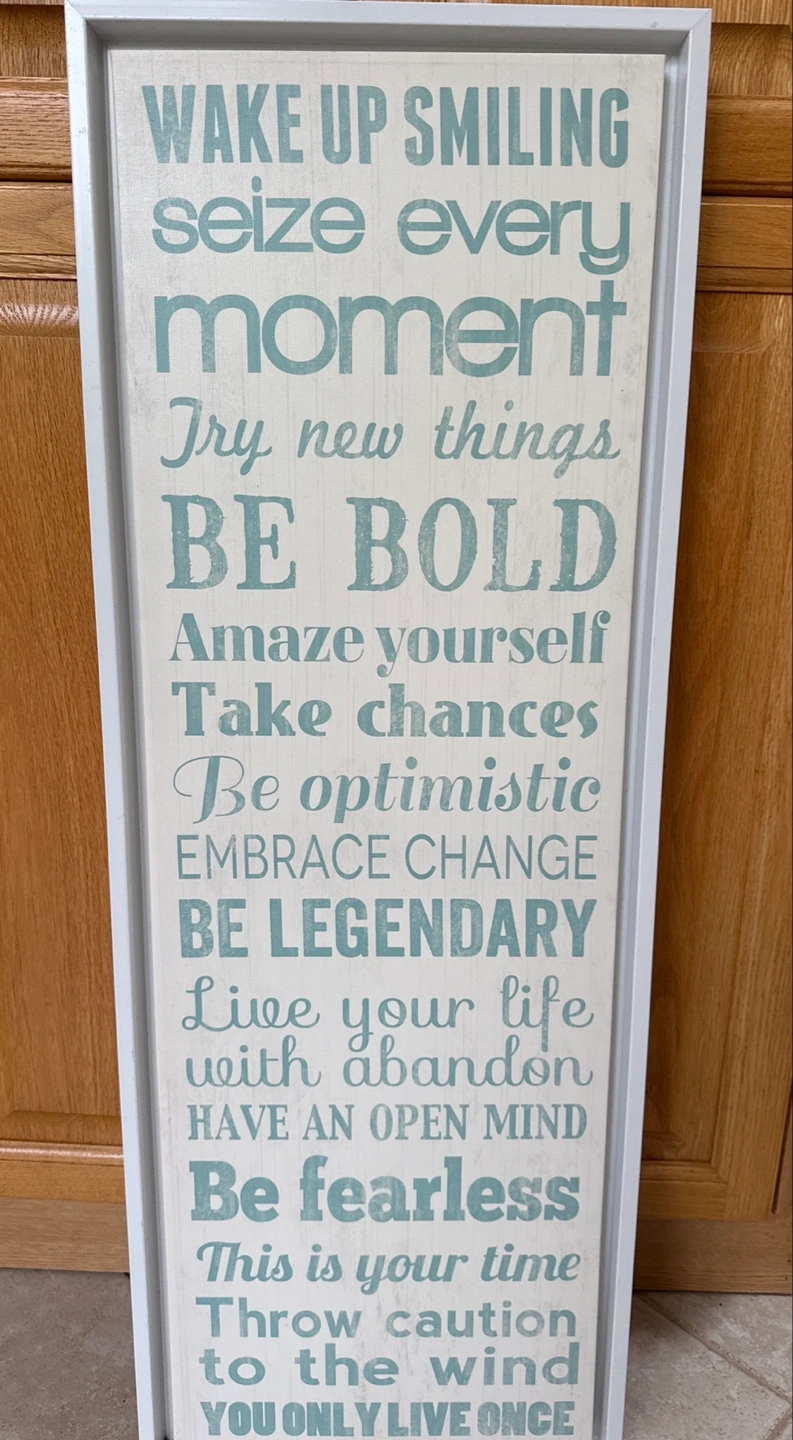 WAKE UP SMILING
seize every
moment
Try new things
BE BOLD
Amaze yourself
Take chances
Be optimistic
EMBRACE CHANGE
BE LEGENDARY
Live your life
with abandon
HAVE AN OPEN MIND
Be fearless
This is your time
Throw caution
to the wind
YOU ONLY LIVE ONCE